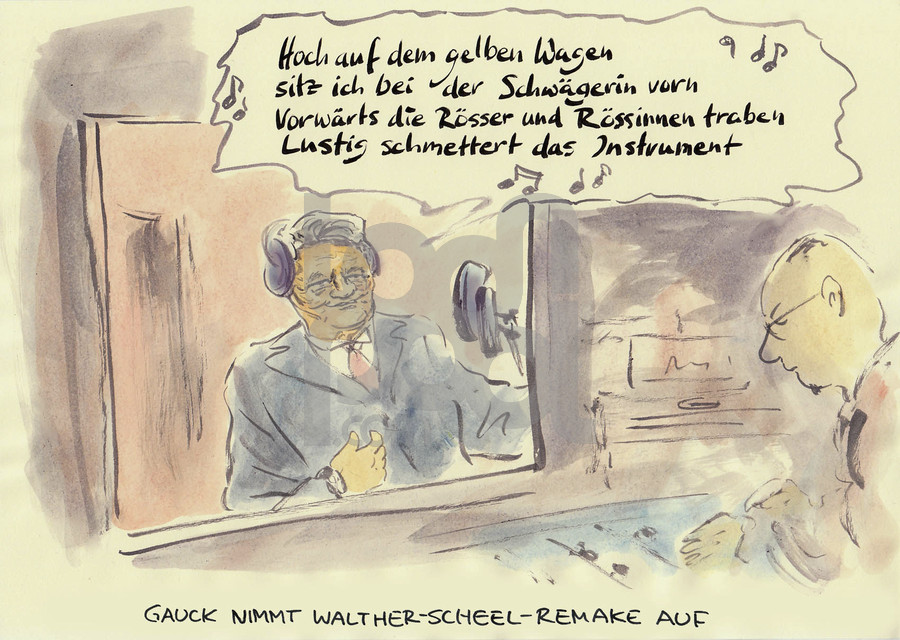 Hoch auf dem gelben Wagen
sitz ich bei der Schwägerin vorn
Vorwärts die Rösser und Rössinnen traben
Lustig schmettert das Instrument
GAUCK NIMMT WALTHER-SCHEEL-REMAKE AUF